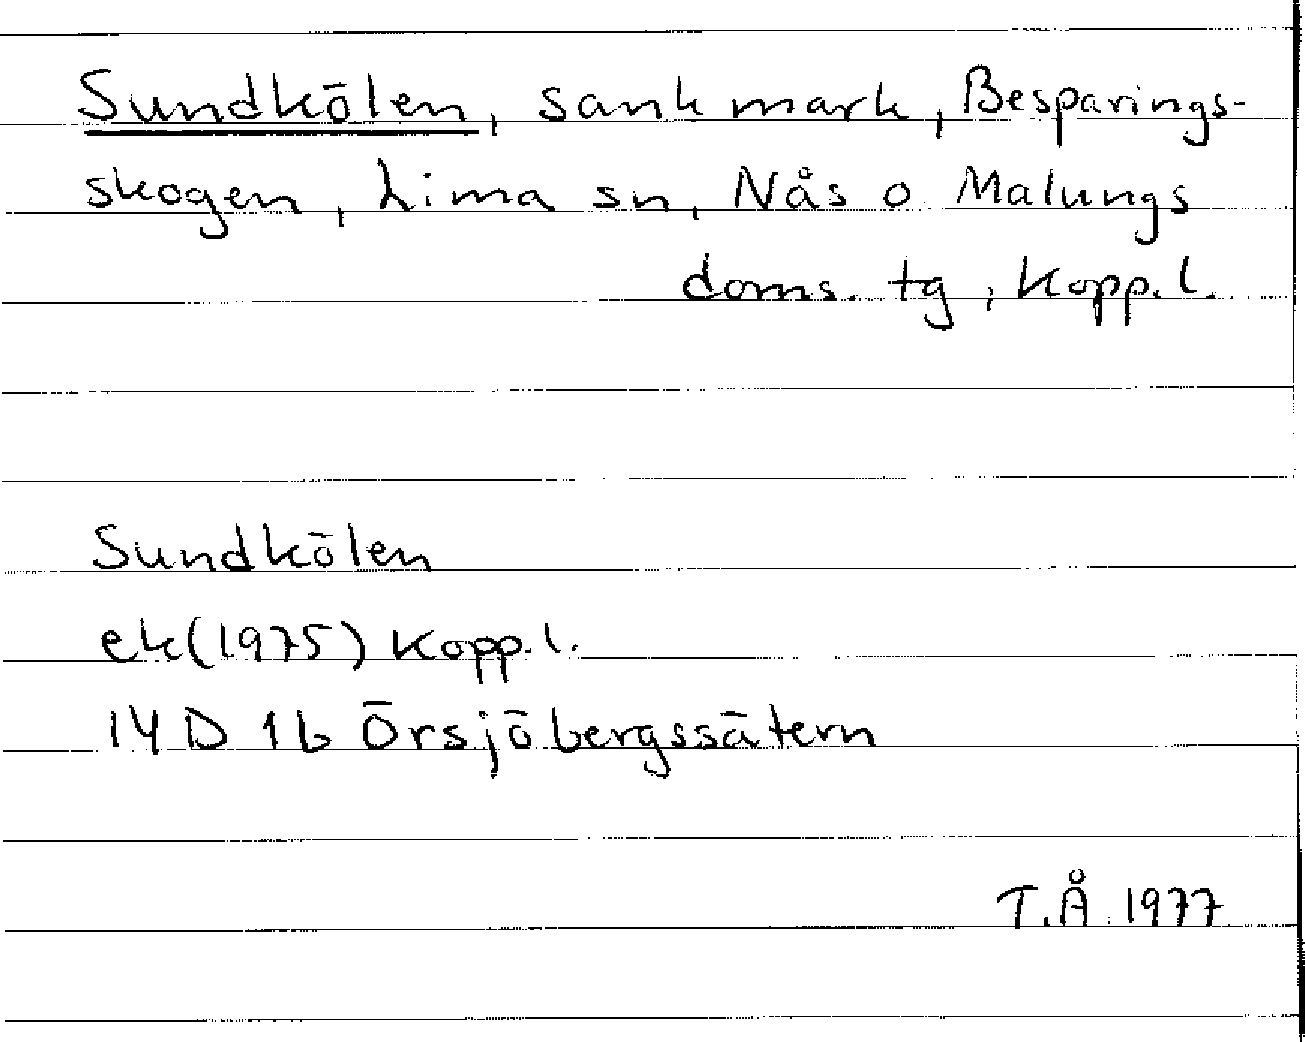 Sundkölen, sank mark, Besparings-
skogen, Lima sn, Nås o Malungs
doms. tg, Kopp.l.
Sundkölen
ek(1975) Kopp.l.
14 D 1b Örsjöbergssätern
T.Å. 1977